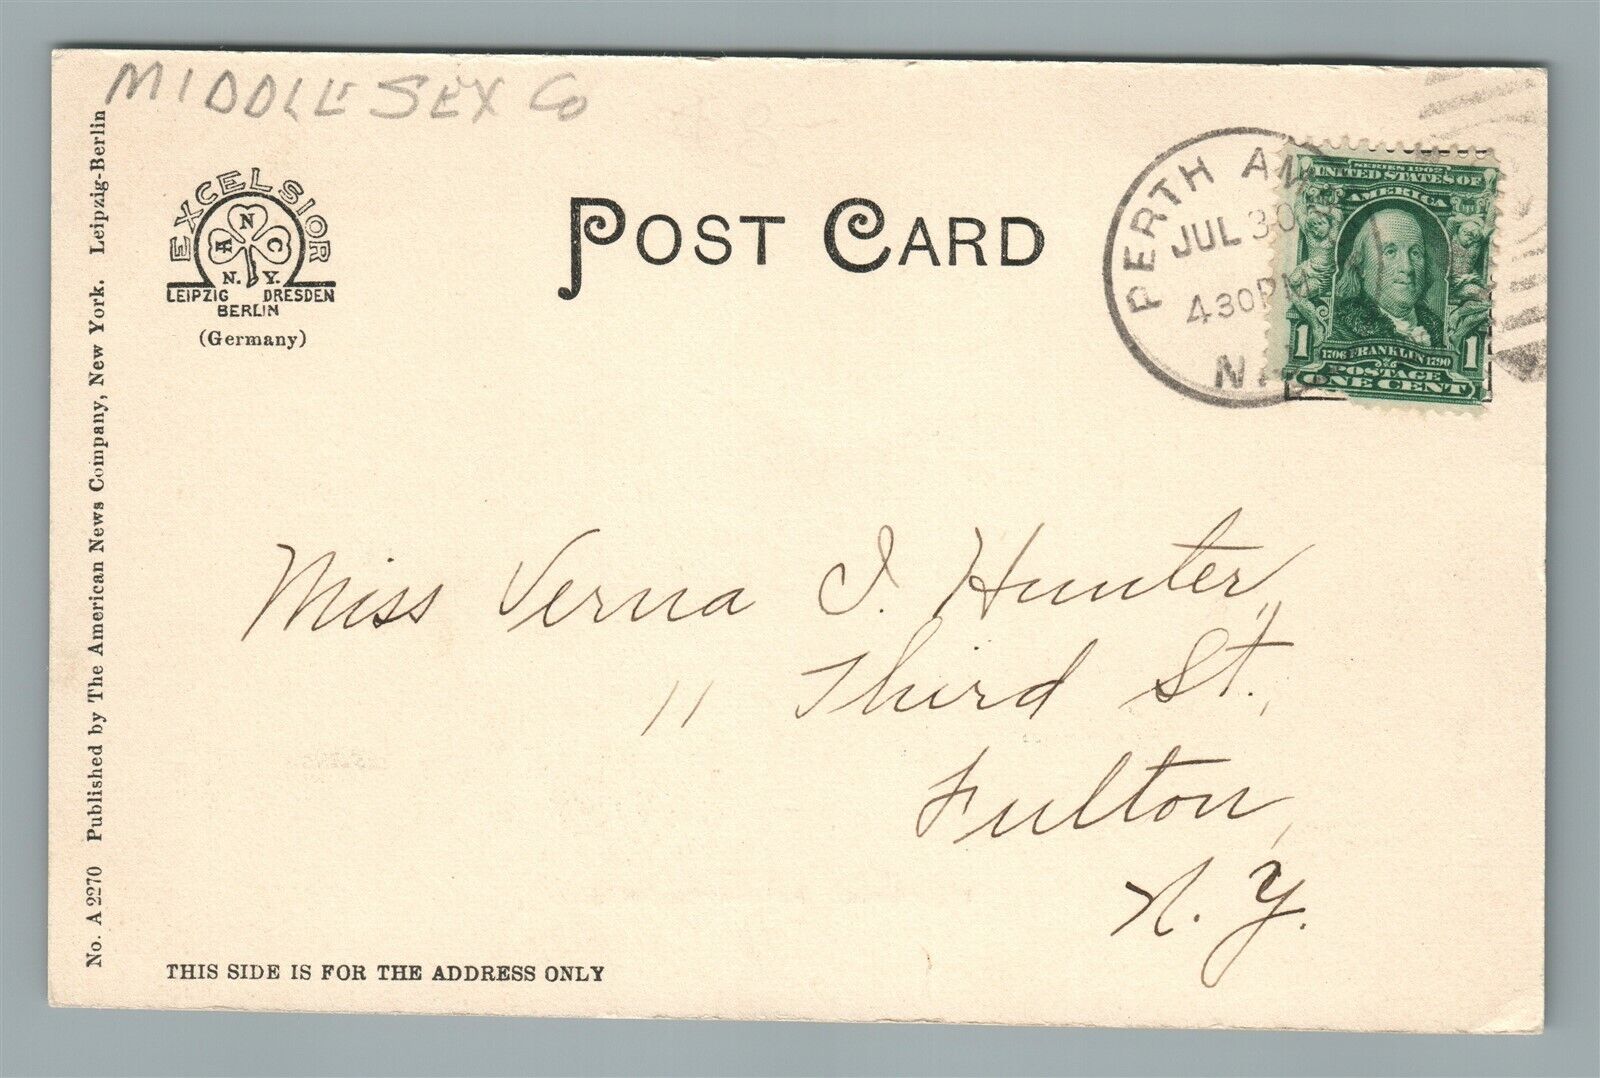 MIDDLESEX Co
EXCELSIOR
A N C
N. Y.
LEIPZIG DRESDEN
BERLIN
(Germany)
No. A 2270 Published by The American News Company, New York. Leipzig-Berlin
POST CARD
PERTH AM
JUL 30
4 30 PM
N
SERIES 1902
UNITED STATES OF
AMERICA
1706 FRANKLIN 1790
1 1
POSTAGE
ONE CENT
Miss Verna I. Hunter,
11 Third St.,
Fulton,
N. Y.
THIS SIDE IS FOR THE ADDRESS ONLY